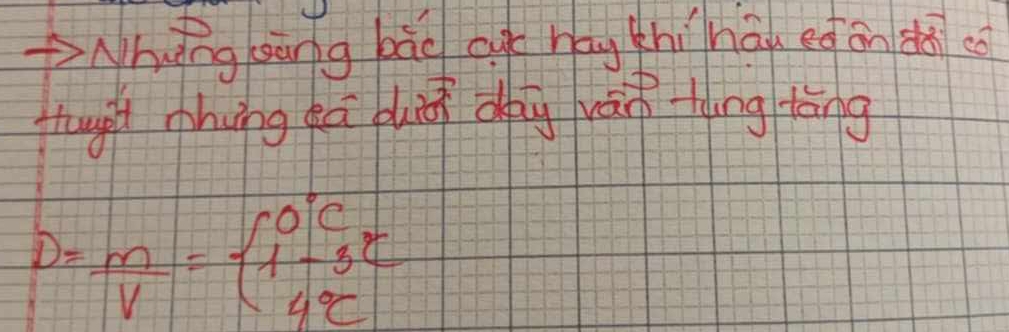 → Những vùng bắc cực hay khí hậu có ôn đới có
tuyết nhưng cá dưới đáy vẫn tung tăng
D = m/V = { 0°C
1 - 3°C
4°C